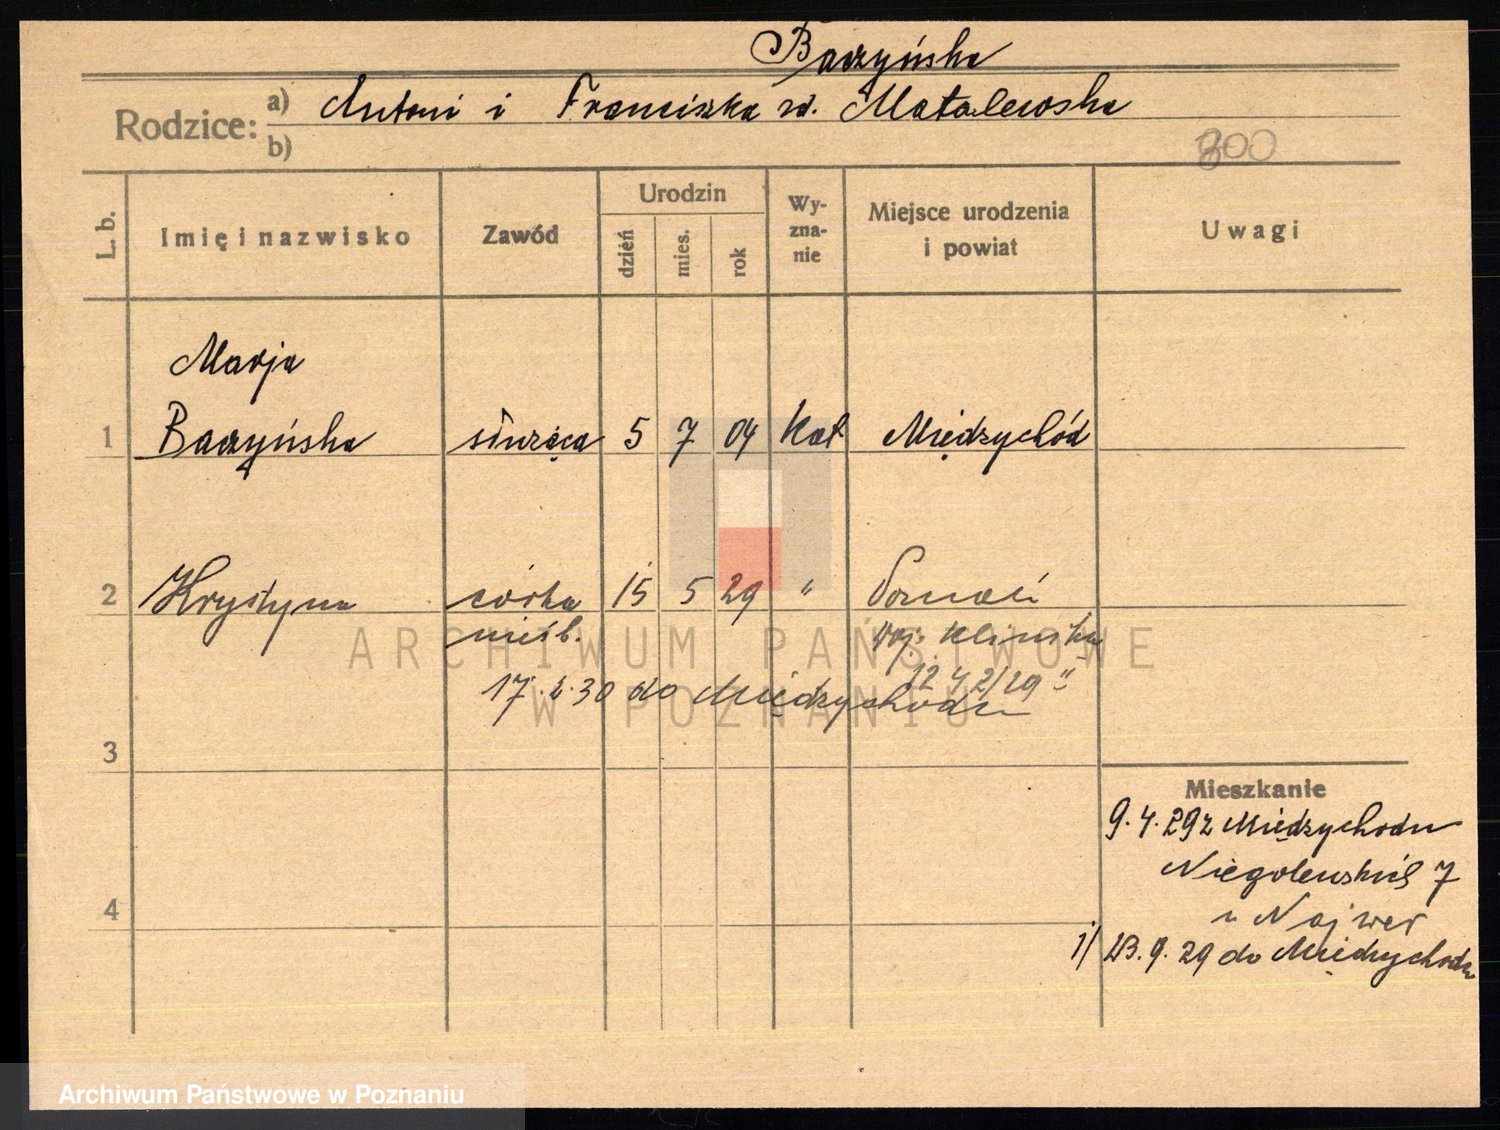 Baczyńska
Rodzice: a) Antoni i Franciszka zd. Matalewska
b)
800
L. b.
Imię i nazwisko
Zawód
Urodzin
dzień
mies.
rok
Wy-
zna-
nie
Miejsce urodzenia
i powiat
Uwagi
Marja
1 Baczyńska służąca 5 7 04 kat Międzychód
2 Krystyna córka 15 5 29 " Poznań
nieśl. Woj. Klinika
1242/29
17. 30 do Międzychodu
3
Mieszkanie
9.4.29 z Międzychodu
Niegolewskich 7
4
u Najwer
1/ 23.9.29 do Międzychodu
ARCHIWUM PAŃSTWOWE
W POZNANIU
Archiwum Państwowe w Poznaniu